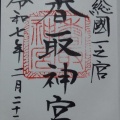 總國一之宮
香取神宮
令和七年二月二十二